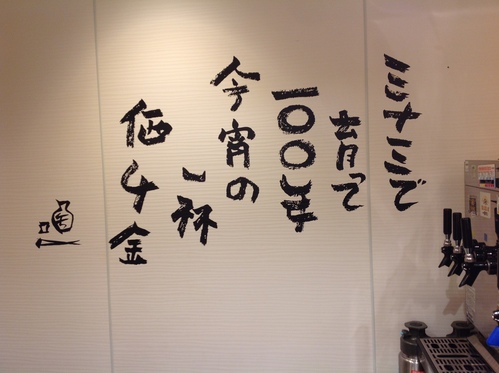 ミナミで
育って
一〇〇年
今宵の
一杯
価千金